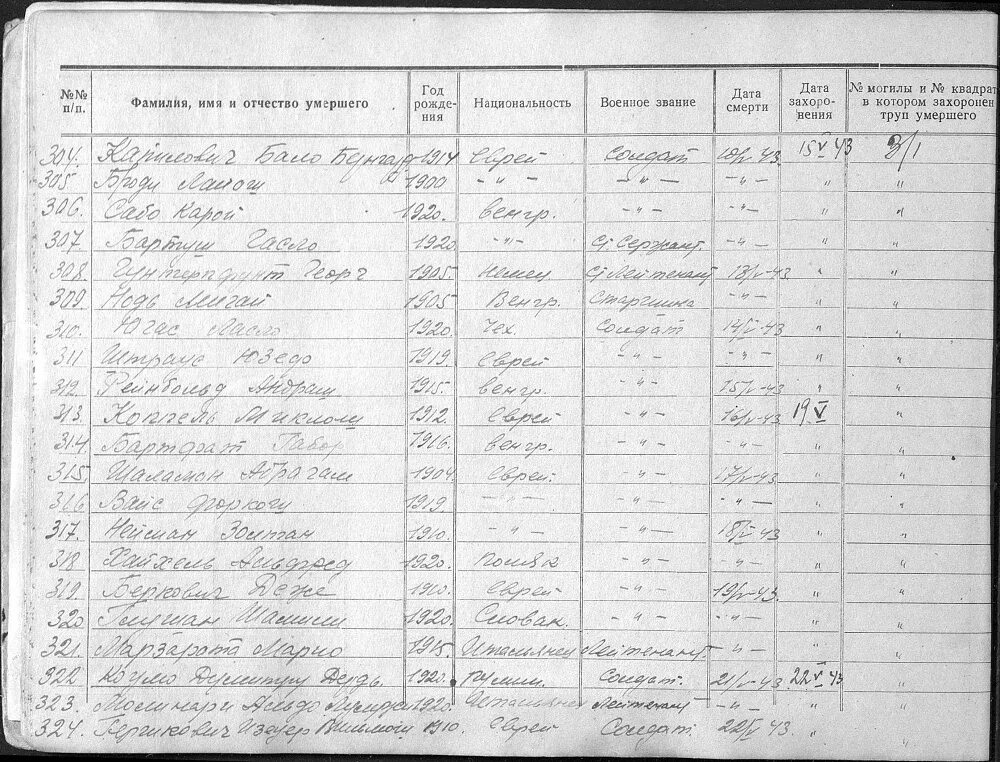 №№ п/п. Фамилия, имя и отчество умершего Год рожде- ния Национальность Военное звание Дата смерти Дата захоро- нения № могилы и № квадрат в котором захоронен труп умершего
304. Каримович Бало 1914 еврей солдат 10/V 43 15 V 43 3/1
305 Броди Лайош 1900 -"- -"- -"- " "
306. Сабо Карой 1920. венгр. -"- -"- " "
307. Бартуш Ласло 1920 -"- Ст Сержант -"- " "
308. Георг 1905. немец Ст Лейтенант 13/V-43 " "
309. Нодь Мигай 1905 Венгр. Старшина -"- " "
310. Югас Ласло 1920. Чех. Солдат 14/V-43 " "
311 Штраус Юзедо 1919. Еврей -"- -"- " "
312. Рейнбольд Андраш 1915. венгр. -"- 15/V-43 " "
313. Коппель Миклош 1912. Еврей -"- 16/V-43 19 V "
314. Бартфат Габор 1916. венгр. -"- " "
315. Шаламон Абрагам 1904. Еврей. -"- 17/V-43 " "
316 Вайс 1919. -"- -"- " "
317. Нейман Золтан 1910. -"- -"- 18/V-43 " "
318. Хайхель Альфред 1920. поляк -"- " "
319. Беркович Деже 1910. еврей -"- 19/V-43. " "
320 Шамили 1920. Словак. -"- -"- " "
321. Марзарота Марио 1915. Итальянец Лейтенант. -"- " "
322 Думитру 1920. румын. Солдат. 21/V-43 22 V 43 "
323. Молинари Альдо 1920. Итальянец Лейтенант -"- " "
324. Гершкович 1910. Еврей Солдат 22/V 43. " "